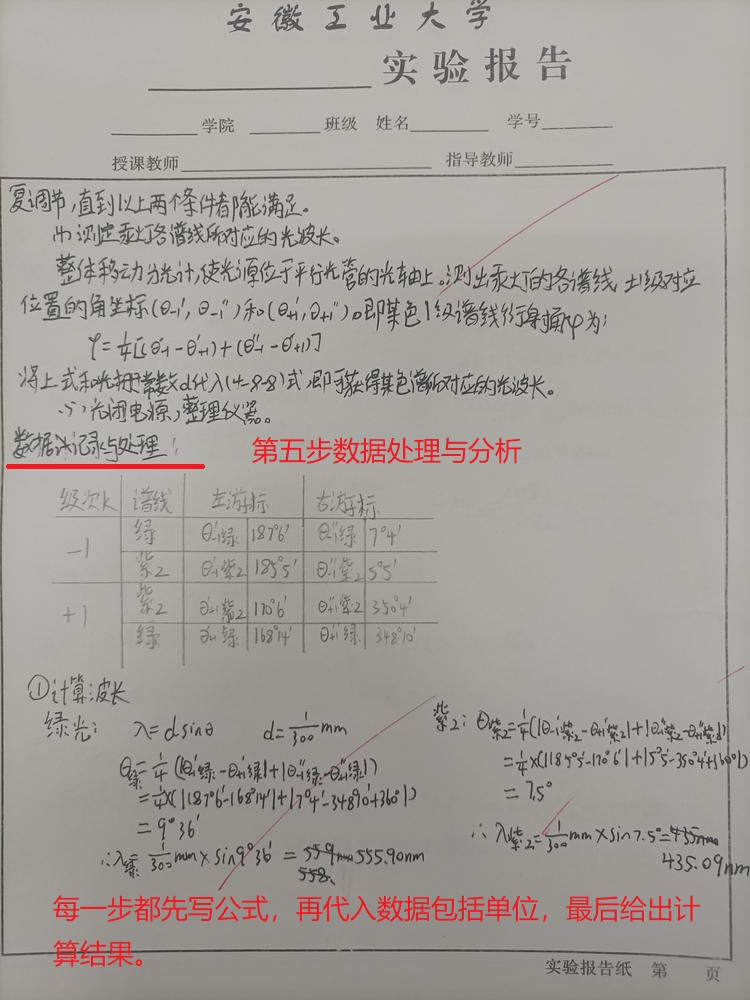 安徽工业大学
实验报告
学院 班级 姓名 学号
授课教师 指导教师
复调节,直到以上两个条件都能满足。
(4)测定汞灯各谱线所对应的光波长。
整体移动分光计,使光源位于平行光管的光轴上。测出汞灯的各谱线±1级对应
位置的角坐标(θ-1', θ-1'')和(θ+1', θ+1'')。即某色1级谱线衍射角φ为:
φ=1/4[(θ'-1-θ'+1)+(θ''-1-θ''+1)]
将上式和光栅常数d代入(4-8-8)式,即可获得某色谱所对应的光波长。
(5)关闭电源,整理仪器。
数据记录与处理:
第五步数据处理与分析
级次K 谱线 左游标 右游标
-1 绿 θ'-1绿 187°6' θ''-1绿 7°4'
紫2 θ'-1紫2 185°5' θ''-1紫2 5°5'
+1 紫2 θ'+1紫2 170°6' θ''+1紫2 350°4'
绿 θ'+1绿 168°14' θ''+1绿 348°10'
①计算波长
绿光: λ=dsinθ d=1/300 mm
θ绿=1/4(|θ'-1绿-θ'+1绿|+|θ''-1绿-θ''+1绿|)
=1/4×(|187°6'-168°14'|+|7°4'-348°10'+360°|)
=9°36'
∴λ绿=1/300mm×sin9°36'=555.90nm
紫2: θ紫2=1/4(|θ-1'紫2-θ+1'紫2|+|θ-1''紫2-θ+1''紫2|)
=1/4×(|185°5'-170°6'|+|5°5'-350°4'+360°|)
=7.5°
∴λ紫2=1/300mm×sin7.5°=
435.09nm
每一步都先写公式,再代入数据包括单位,最后给出计
算结果。
实验报告纸 第 页